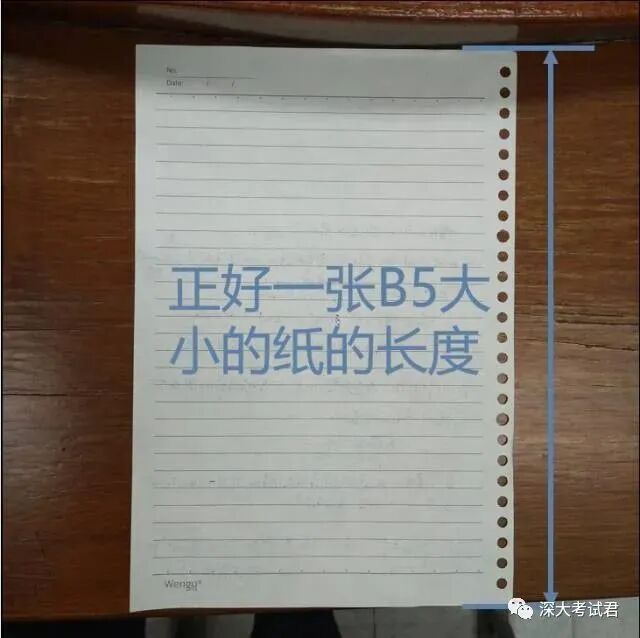 No.
Date: / /
正好一张B5大
小的纸的长度
Wengu®
深大考试君